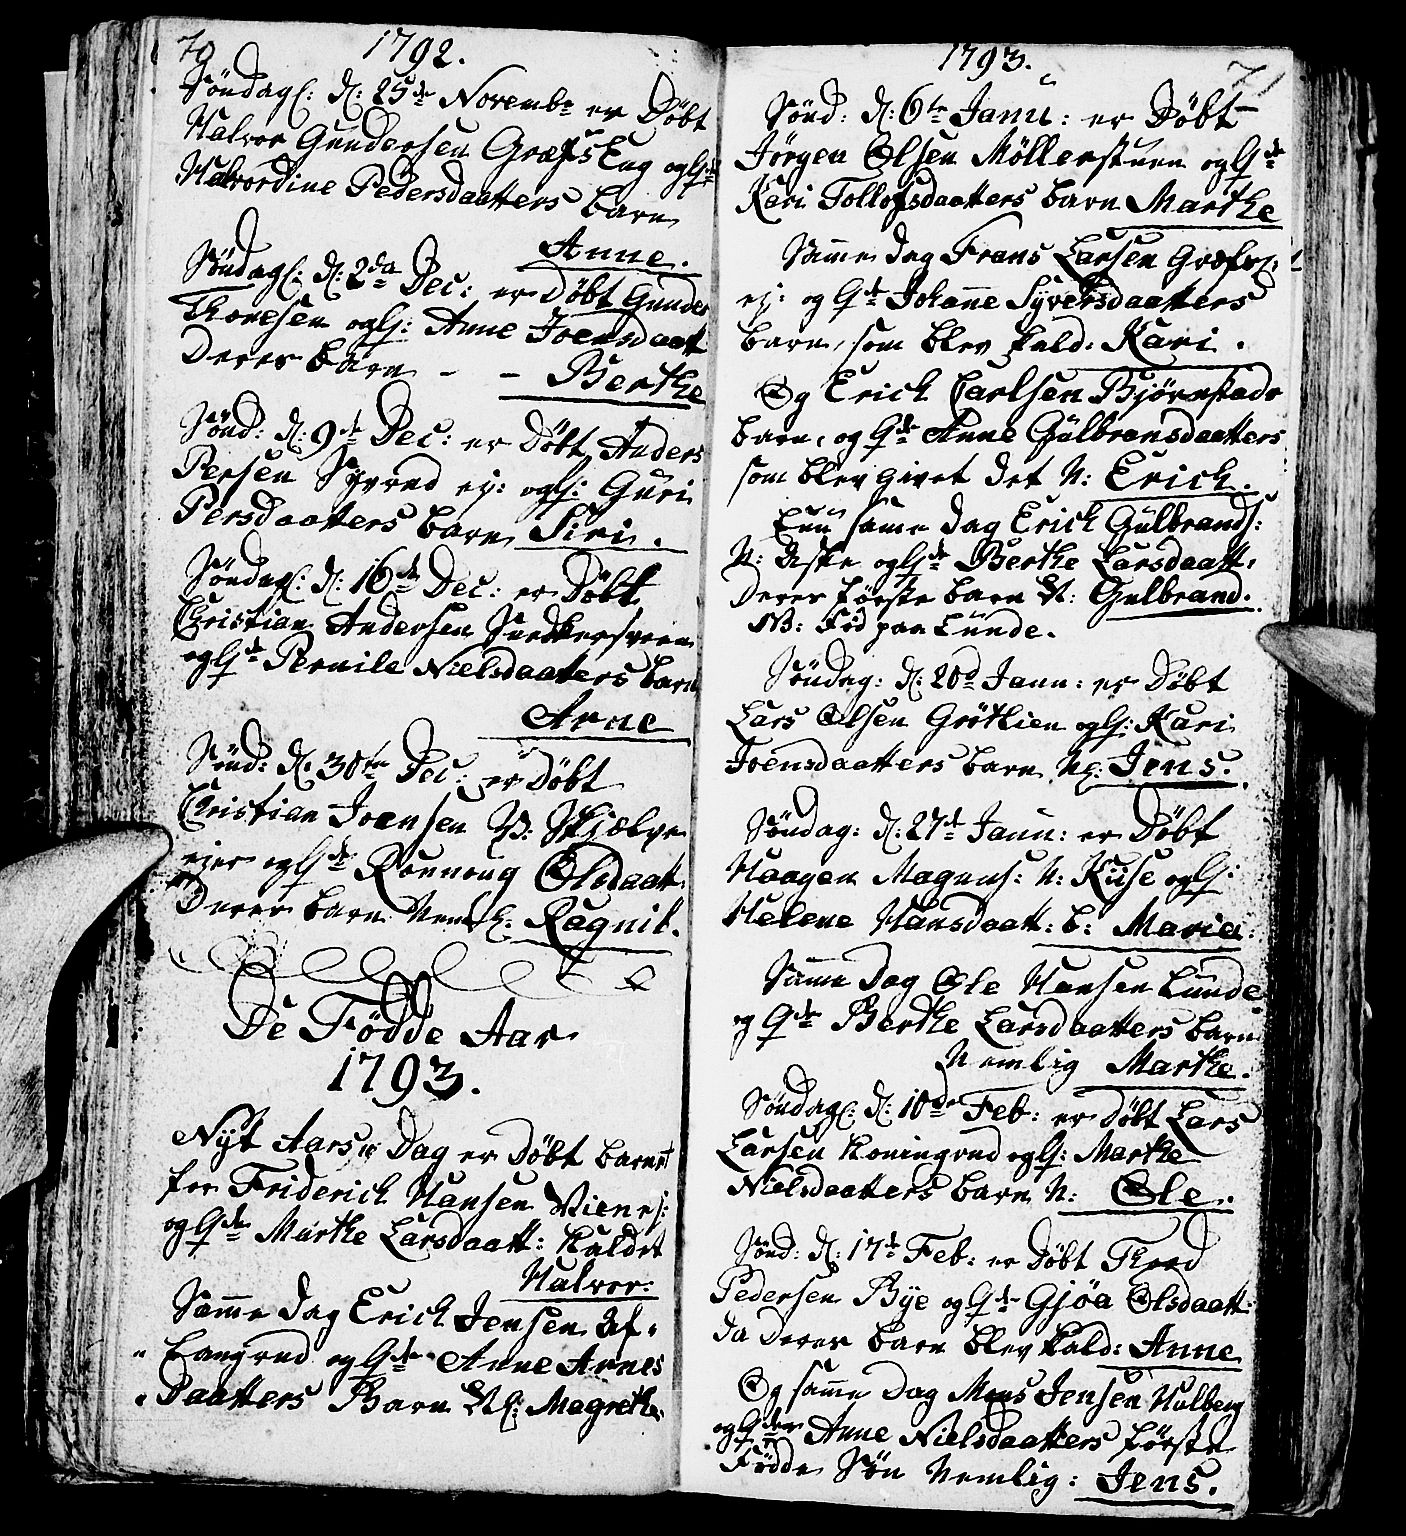 70
1792.
Söndagl: d: 25de Novembr er Döbt
Halvor Gundersen Græfs Eng og Gde
Halvordine Pedersdaatters barn
Anne.
Söndagl: d: 2da Dec: er Döbt Gunder
Thoresen og G: Anne Joensdaatt
Deres barn - - Berthe
Sönd: d: 9de Dec: er Döbt Anders
Persen Syverud ej: og G: Guri
Persdaatters barn Siri.
Söndag: d: 16de Dec: er Döbt
Christian Andersen
og Gde Pernile Nielsdaatters barn
Arne
Sönd: d. 30te Dec: er Döbt
Christian Joensen
ejer og Gde Rönnoug Olsdaatt:
Deres barn Neml: Ragnil.
De Födde Aar
1793.
Nyt Aars Dag er Döbt barnet
for Friderich Hansen
og Gde Marthe Larsdaatt: kaldet
Halvor:
Samme dag Erich Jensen Uf-
Langrud og Gde Anne Arnes
Daatters Barn N: Magrethe
1793.
71
Sönd: d: 6te Janu: er Döbt
Jörgen Olsen Möllerstuen og Gde
Kari Tollofsdaatters barn Marthe
Samme dag Frans Larsen
ej: og Gde Johanne Syversdaatters
barn, som blev kald: Kari.
Og Erich Carlsen Björnstads
barn, og Gde Anne Gülbransdaatters
som blev givet det N: Erich.
Enn same dag Erich Gülbrands:
N: Aske og Gde Berthe Larsdaatt:
Deres förste barn N: Gulbrand.
NB: Föd paa Lunde.
Söndag: d: 20d Janu: er Döbt
Lars Olsen Gröthien og G: Kari
Joensdaatters barn N: Jens.
Söndag: d: 27de Janu: er Döbt
Haagen Magnus: N: Kuse og G:
Helene Hansdaatt: b: Maria:
Samme Dag Ole Hansen Lunde
og Gde Berthe Larsdaatters barn
Nemlig Marthe.
Söndagl: d: 10de Feb: er döbt Lars
Larsen Koningrud og G: Marthe
Nielsdaatters barn N: Ole.
Sönd: d: 17de Feb: er Döbt Thord
Pedersen Bye og Gde Gjöa Olsdaatt:
da deres barn blev kald: Anne
Og samme dag Mons Jensen Hulberg
og Gdes Anne Nielsdaatters förste
Födde Sön Nemlig: Jens.